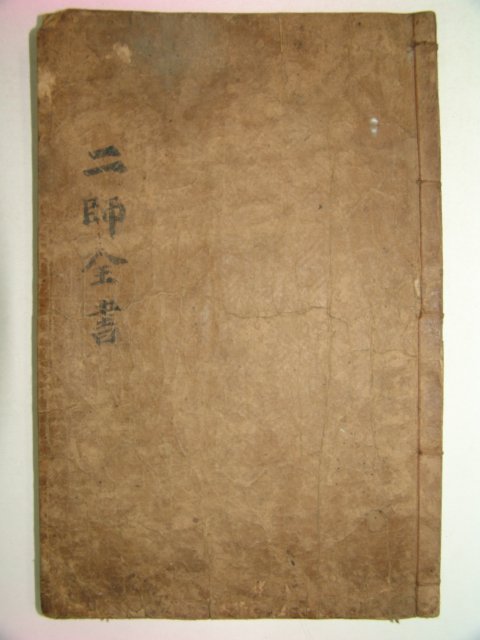 二師全書